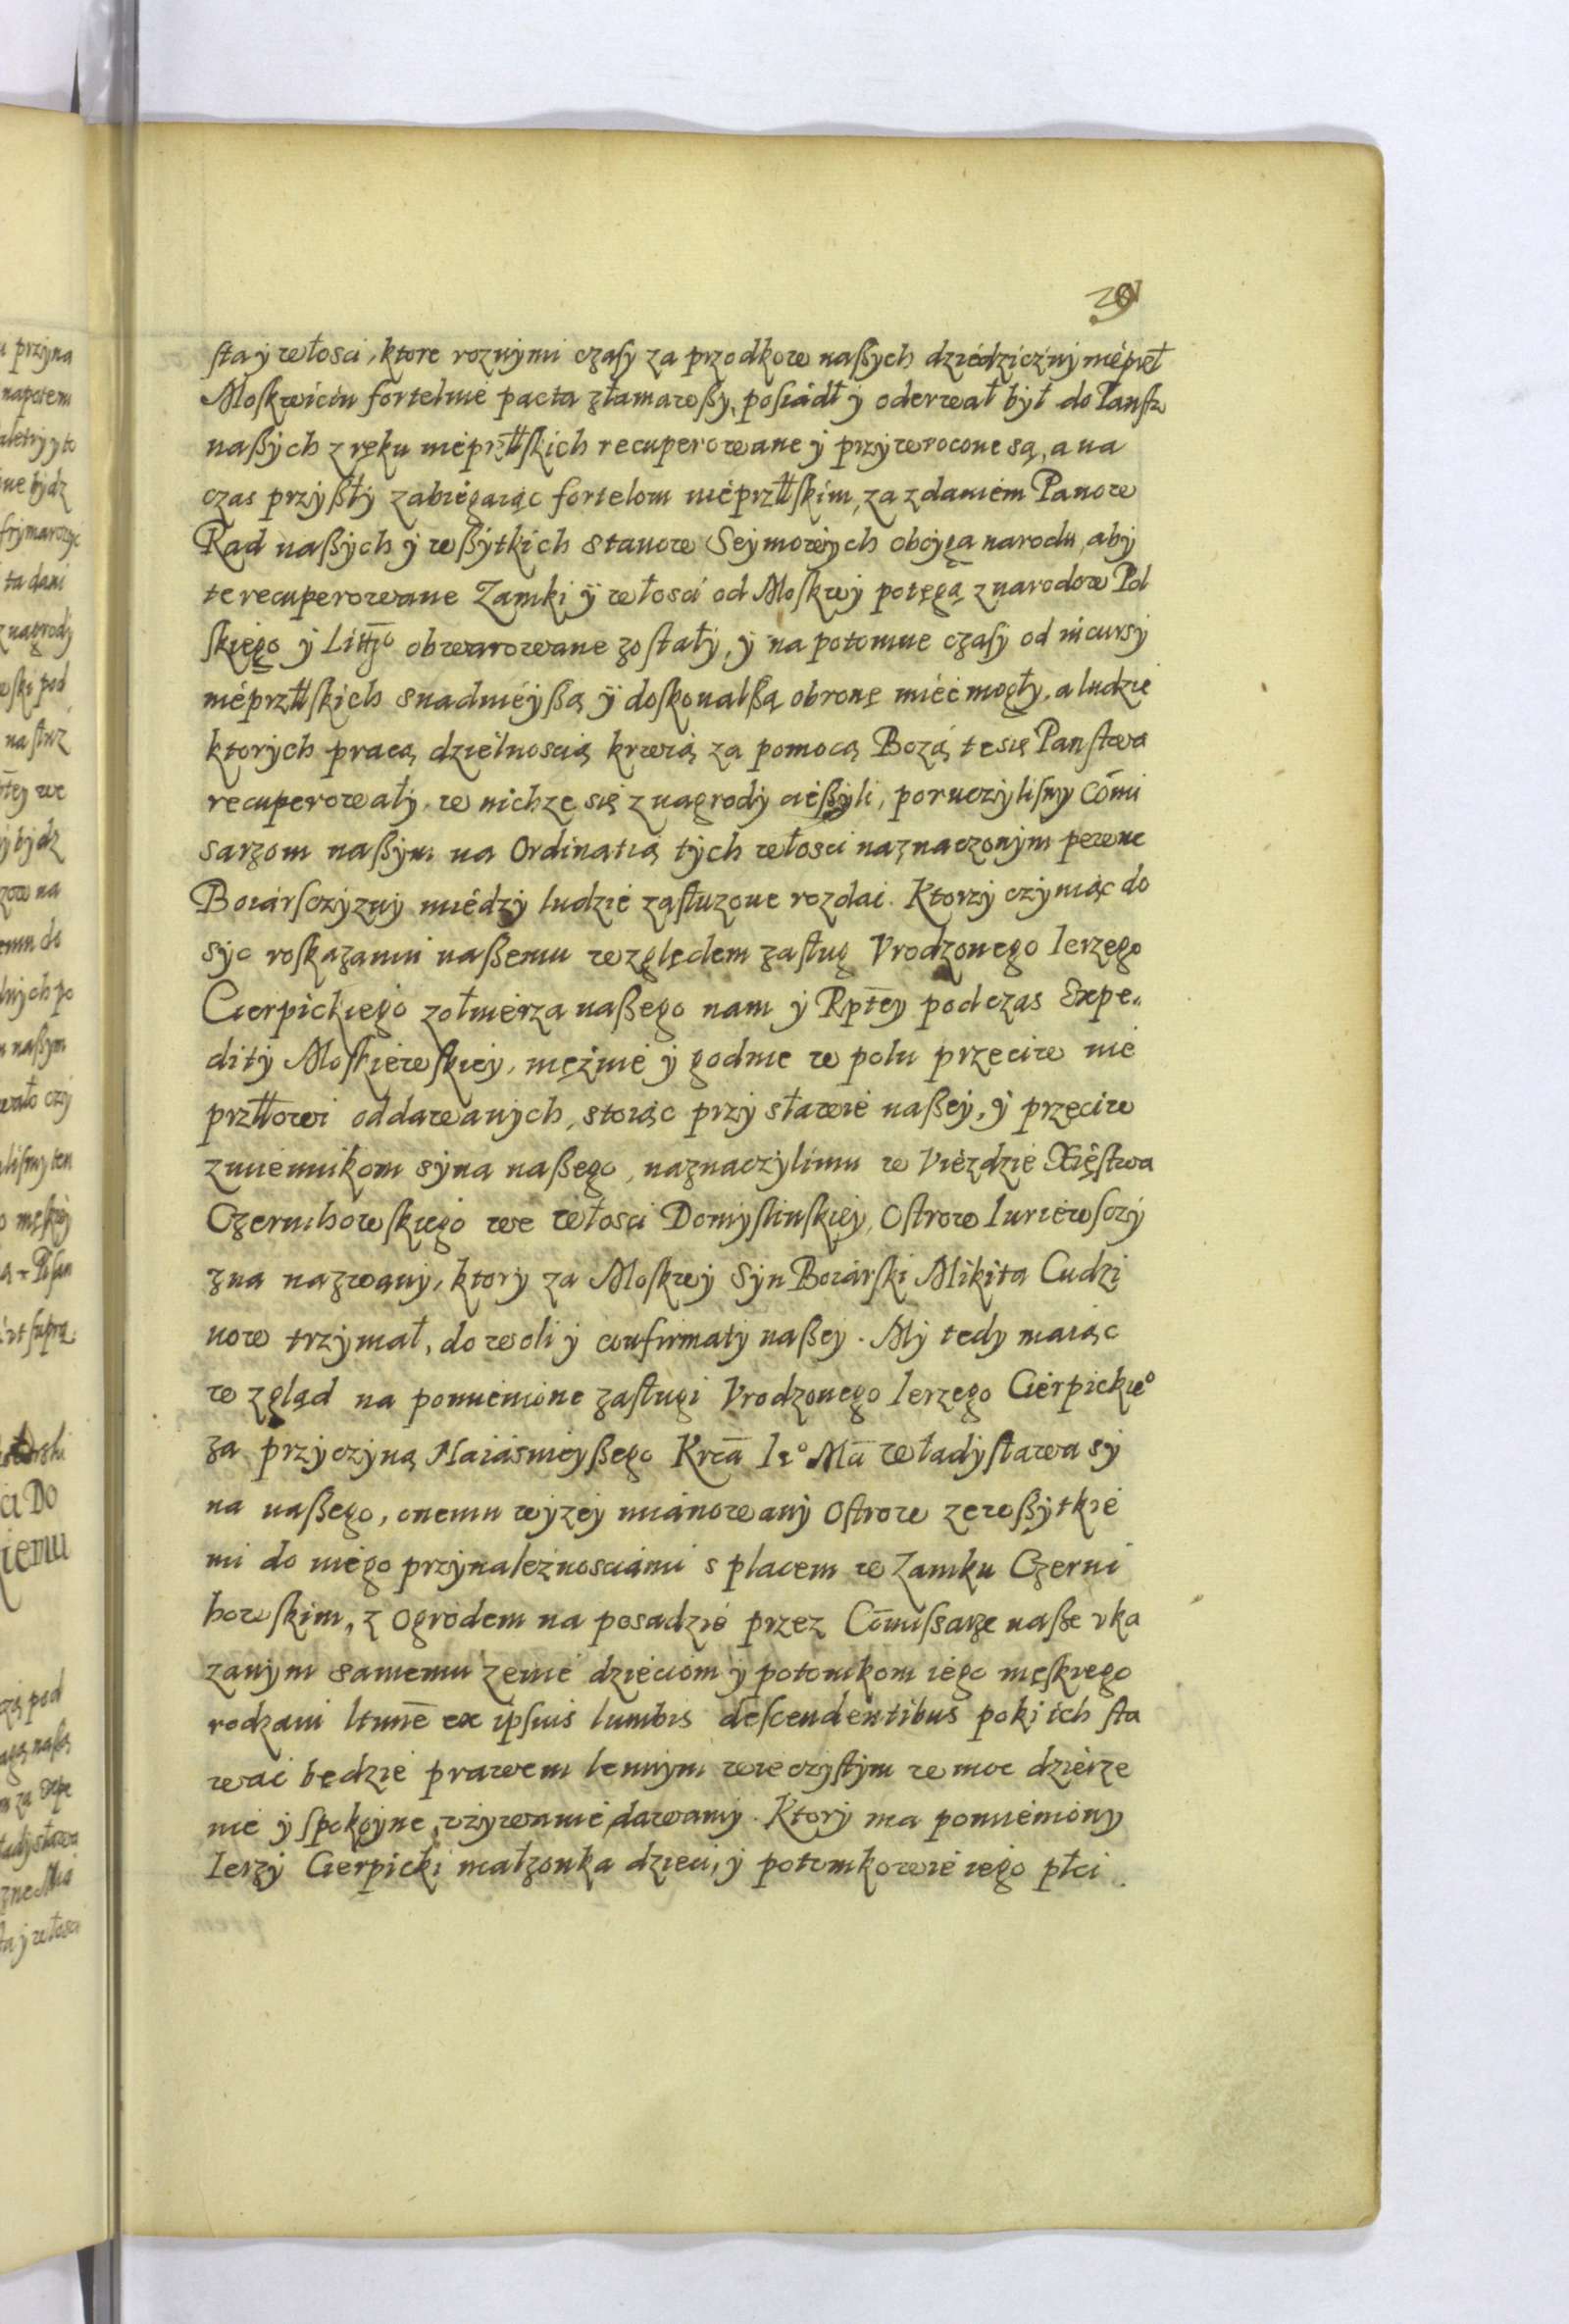 39
sta y włosci, ktore roznymi czasy za przodkow naszych dziedziczny niéprzł
Moskwicin fortelnie pacta złamawszy, posiadł y oderwał był do Panstw
naszych z ręku niéprzłłskich recuperowane y przywrocone są, a na
czas przyszły zabiegaiąc fortelom niéprzłłskim, za zdaniem Panow
Rad naszych y wszytkich stanow Seymowych oboyga narodu, aby
te recuperowane Zamki y włosci od Moskwy potęgą z narodow Pol
skiego y Litt̄go obwarowane zostały, y na potomne czasy od incursy
niéprzłłskich snadniéyszą y doskonalszą obronę mieć mogły, a ludzie
ktorych pracą dzielnoscią krwią za pomocą Bozą te się Panstwa
recuperowały, w nichze się z nagrody cieszyli, poruczylismy Com̄i
sarzom naszym na Ordinatią tych włosci naznaczonym pewne
Boiarsczyzny między ludzie zasłuzone rozdać. Ktorzy czyniąc do
syc roskazaniu naszemu względem zasług Vrodzonego Ierzego
Cierpickiego zołnierza naszego nam y Rpt̄ey podczas Expe„
dity Moskiewskiey, mężnie y godnie w polu przeciw nie
przłłowi oddawanych, stoiąc przy sławie naszey, y przeciw
zmiennikom syna naszego, naznaczylimu w Viezdzie Xięstwa
Czernihowskiego we włosci Domyslinskiey, Ostrow Iuriewsczy
zna nazwany, ktory za Moskwy Syn Boiarski Mikita Cudzi
now trzymał, do woli y confirmaty naszey. My tedy maiąc
wzgląd na pomienione zasługi Vrodzonego Ierzego Cierpickie°
za przyczyną Naiásnieyszego Krc̄a Ie° Mc̄i Władysława sy
na naszego, onemu wyzey mianowany Ostrow ze wszytkie
mi do niego przynalężnosciami s placem w Zamku Czerni
howskim, z ogrodem na posadzie przez Com̄issarze nasze vka
zanym samemu zenie dzieciom y potomkom iego męskiego
rodzaiu ltimē ex ipsius lumbis descendentibus poki ich sta
wać będzie prawem lennym wieczystym w moc dzierze
nie y spokoyne vżywanie dawamy. Ktory ma pomieniony
Ierzy Cierpicki małzonka dzieci, y potomkowie iego płci